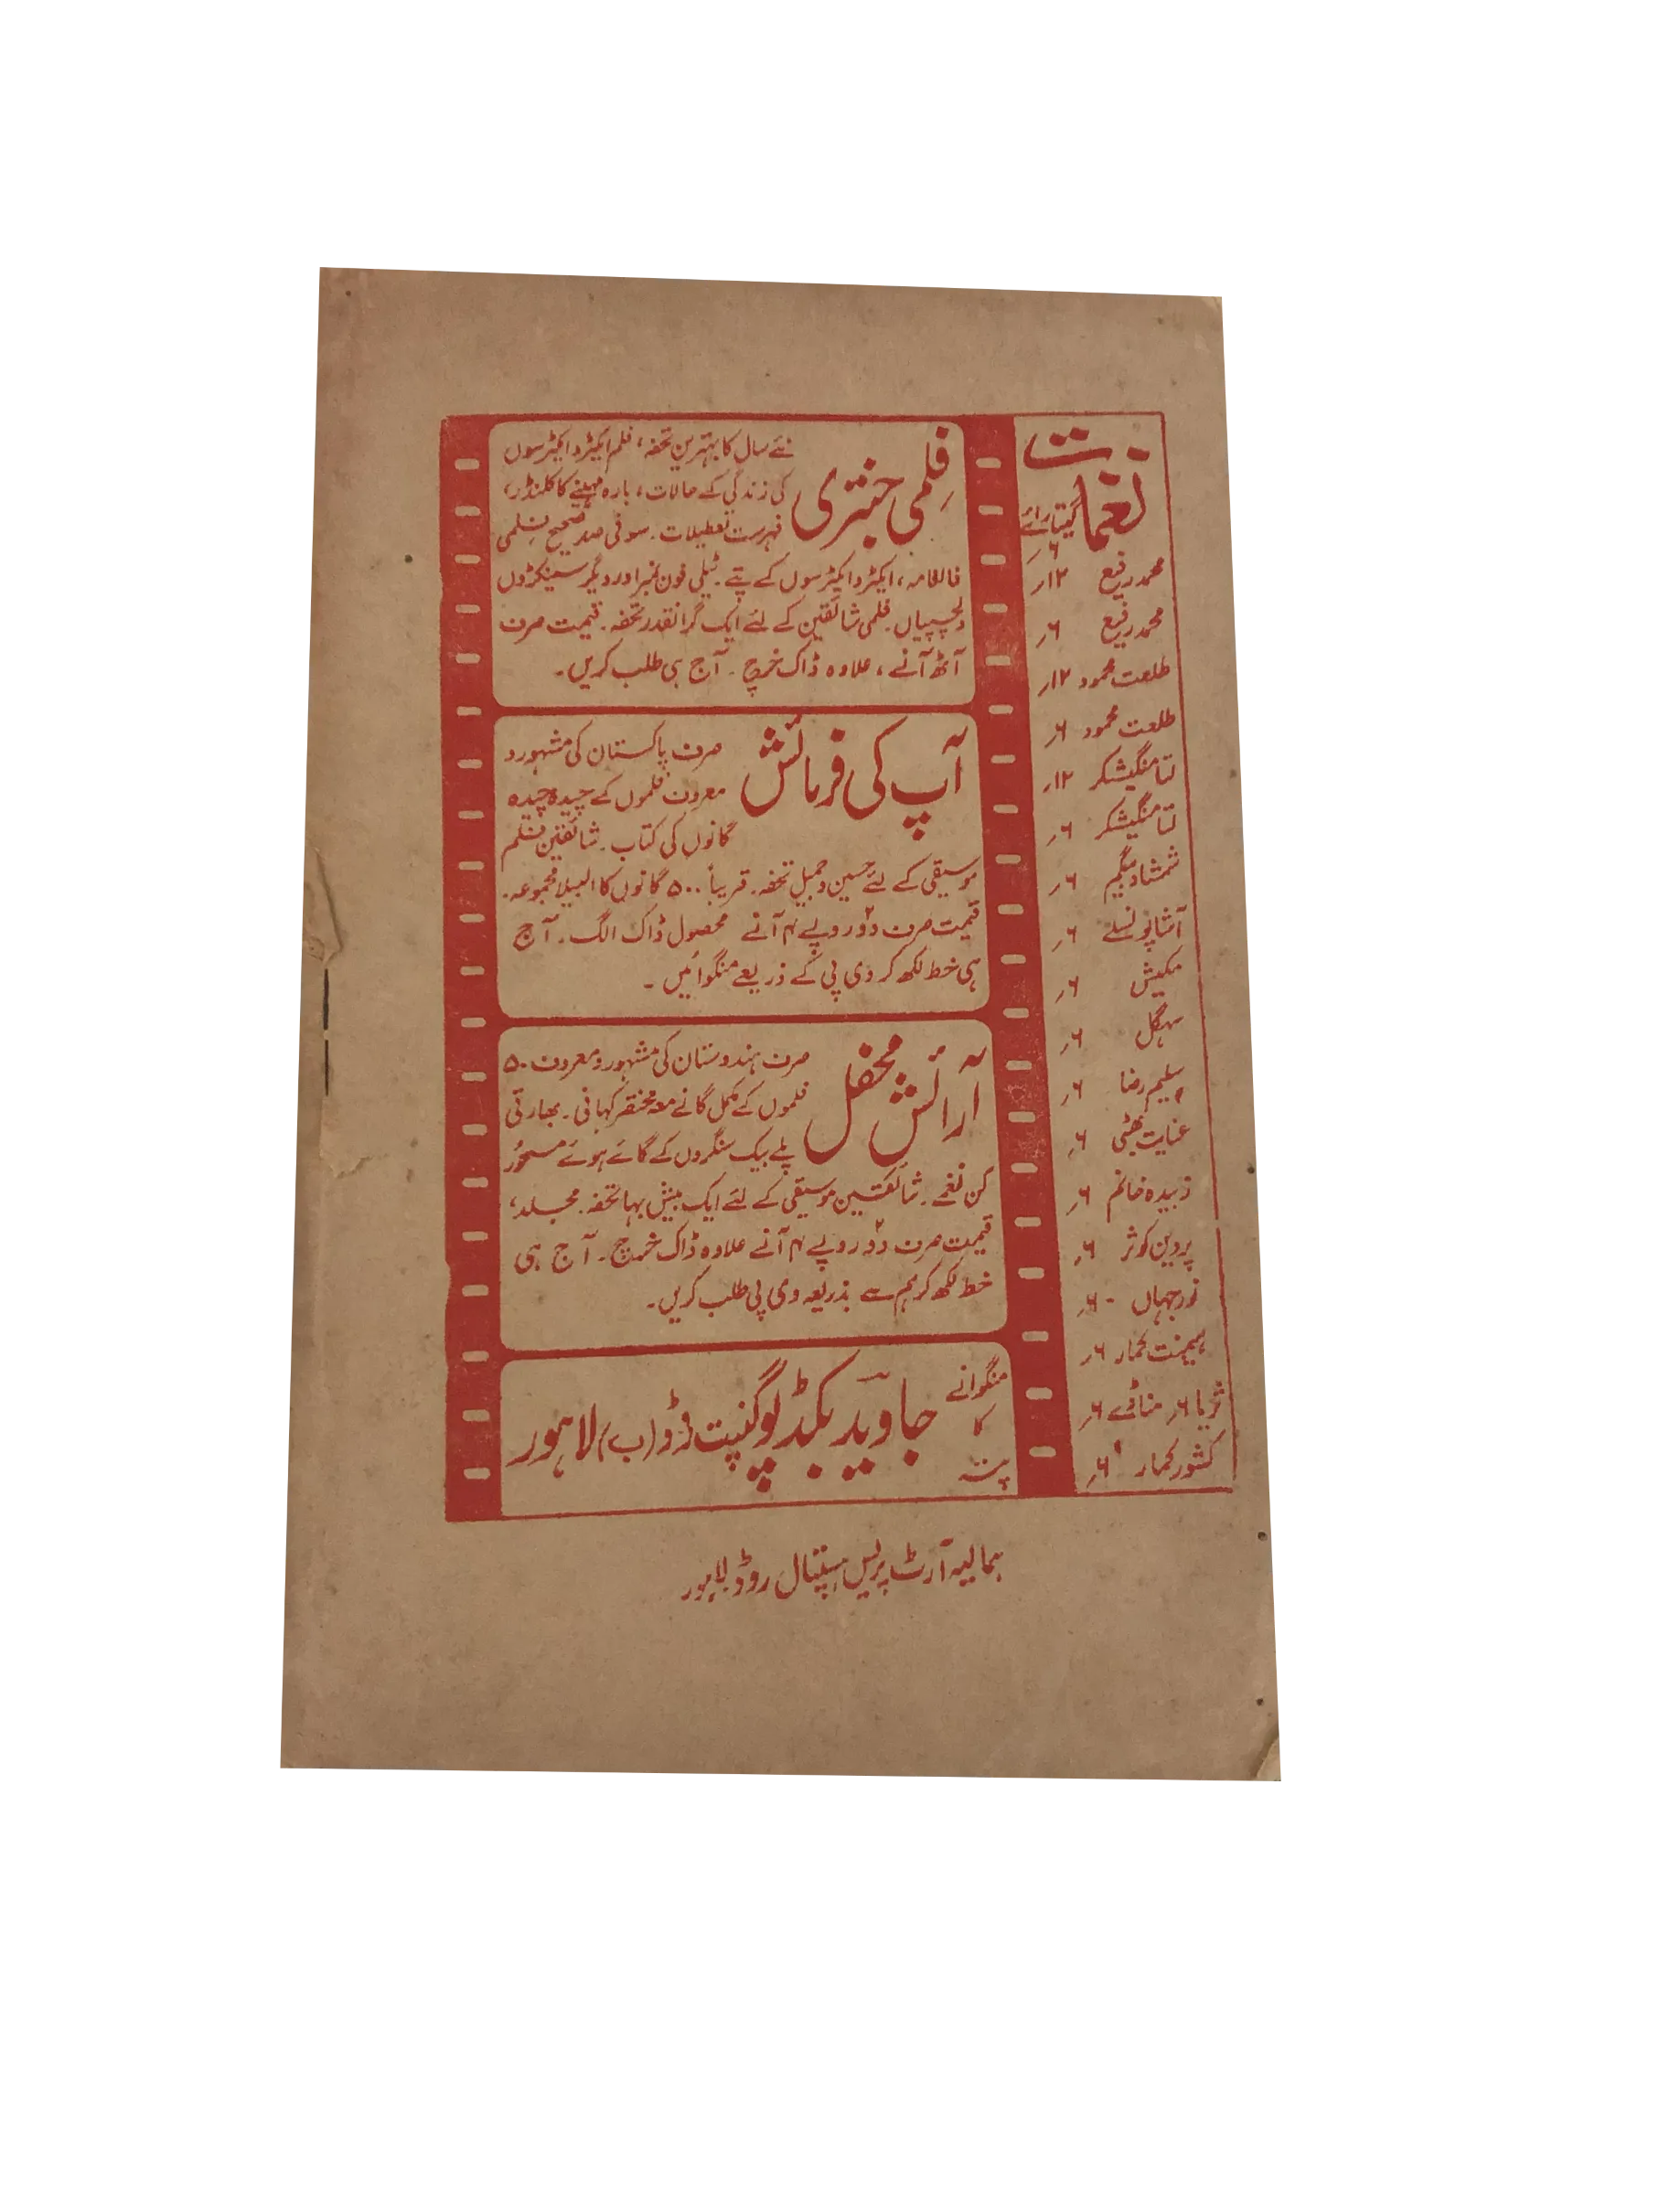 نغمات
گیتا رائے ۶ر
محمد رفیع ۱۲ر
محمد رفیع ۶ر
طلعت محمود ۱۲ر
طلعت محمود ۶ر
لتا منگیشکر ۱۲ر
لتا منگیشکر ۶ر
شمشاد بیگم ۶ر
آشا بھونسلے ۶ر
مکیش ۶ر
سہگل ۶ر
سلیم رضا ۶ر
عنایت بھٹی ۶ر
زبیدہ خانم ۶ر
پروین کوثر ۶ر
نور جہاں ۶ر
ہیمنت کمار ۶ر
ثریا ۶ر مناڈے ۶ر
کشور کمار ۶ر
فلمی جنتری
نئے سال کا بہترین تحفہ، فلم ایکٹر و ایکٹرسوں
کی زندگی کے حالات، بارہ مہینے کا کلنڈر،
فہرست تعطیلات۔ سو فی صد صحیح فلمی
فالنامہ، ایکٹر و ایکٹرسوں کے پتے۔ ٹیلی فون نمبر اور دیگر سینکڑوں
دلچسپیاں۔ فلمی شائقین کے لئے ایک گرانقدر تحفہ۔ قیمت صرف
آٹھ آنے، علاوہ ڈاک خرچ۔ آج ہی طلب کریں۔
آپ کی فرمائش
صرف پاکستان کی مشہور و
معروف فلموں کے چیدہ چیدہ
گانوں کی کتاب۔ شائقین فلم
موسیقی کے لئے حسین و جمیل تحفہ۔ قریباً ۵۰۰ گانوں کا البیلا مجموعہ۔
قیمت صرف دو روپے ۴ آنے محصول ڈاک الگ۔ آج
ہی خط لکھ کر وی پی کے ذریعے منگوائیں۔
آرائش محفل
صرف ہندوستان کی مشہور و معروف ۵۰
فلموں کے مکمل گانے معہ مختصر کہانی۔ بھارتی
پلے بیک سنگروں کے گائے ہوئے مسحور
کن نغمے۔ شائقین موسیقی کے لئے ایک بیش بہا تحفہ۔ مجلد،
قیمت صرف دو روپے ۴ آنے علاوہ ڈاک خرچ۔ آج ہی
خط لکھ کر ہم سے بذریعہ وی پی طلب کریں۔
منگوانے کا پتہ
جاوید بکڈپو گنپت روڈ (ب) لاہور
ہمالیہ آرٹ پریس ہسپتال روڈ لاہور